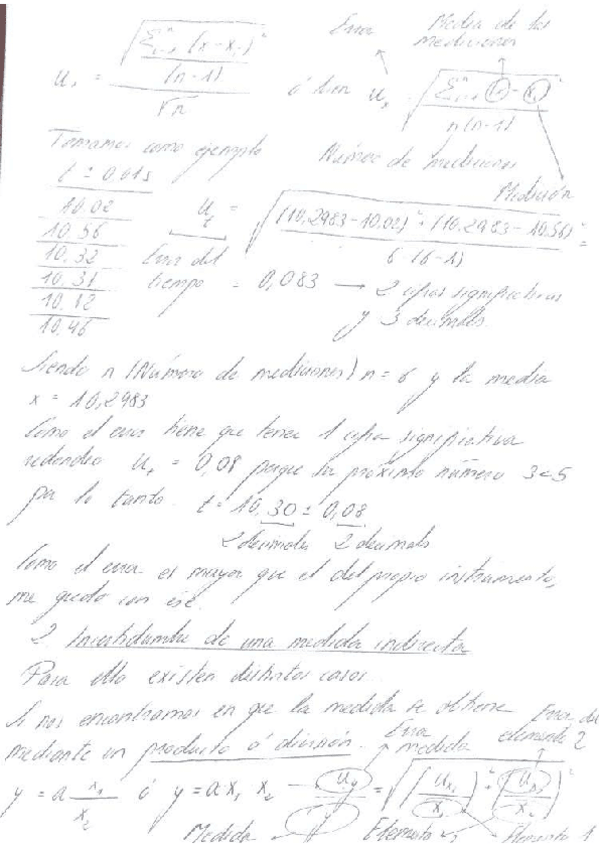 Error Media de las
mediciones
u_x = √(Σⁿ_{i=1} (x-x_i)² / (n-1)) / √n ó bien u_x = √(Σⁿ_{i=1} (x̄ - x_i)² / n(n-1))
Tomamos como ejemplo Número de mediciones
t ± 0,01s Medición
10,02
10,56
10,32
10,31
10,12
10,46
u_t = √((10,2983-10,02)² + (10,2983-10,56)² / 6(6-1)) =
Error del
tiempo = 0,083 → 2 cifras significativas
y 3 decimales.
Siendo n (Número de mediciones) n = 6 y la media
x = 10,2983
Como el error tiene que tener 1 cifra significativa
redondeo u_t = 0,08 porque la próximo número 3<5
por lo tanto t = 10,30 ± 0,08
2 decimales 2 decimales
Como el error es mayor que el del propio instrumento,
me quedo con ese.
2. Incertidumbre de una medida indirecta
Para ello existen distintos casos
Si nos encontramos en que la medida se obtiene Error del
mediante un producto ó división. Error medida elemento 2
y = a x_1/x_2 ó y = a x_1 x_2 → u_y/y = √((u_{x1}/x_1)² + (u_{x2}/x_2)²)
Medida Elemento 2 Elemento 1